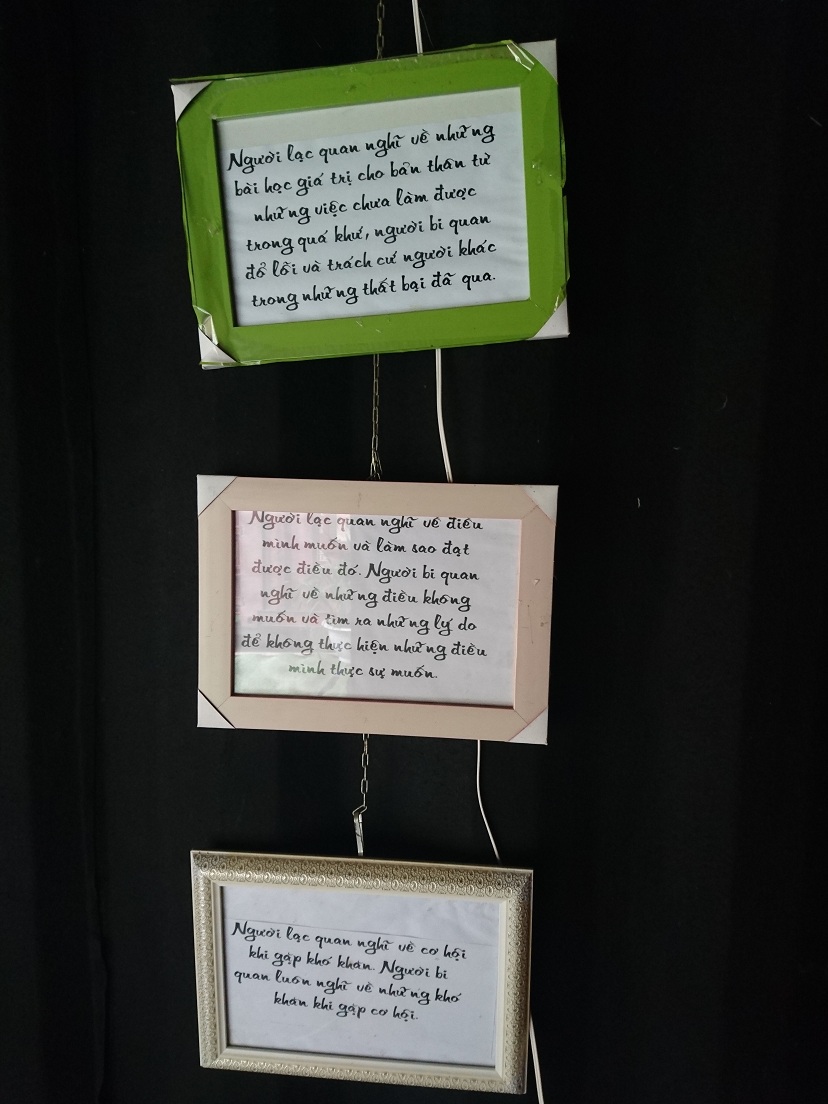 Người lạc quan nghĩ về những
bài học giá trị cho bản thân từ
những việc chưa làm được
trong quá khứ, người bi quan
đổ lỗi và trách cứ người khác
trong những thất bại đã qua.
Người lạc quan nghĩ về điều
mình muốn và làm sao đạt
được điều đó. Người bi quan
nghĩ về những điều không
muốn và tìm ra những lý do
để không thực hiện những điều
mình thực sự muốn.
Người lạc quan nghĩ về cơ hội
khi gặp khó khăn. Người bi
quan luôn nghĩ về những khó
khăn khi gặp cơ hội.